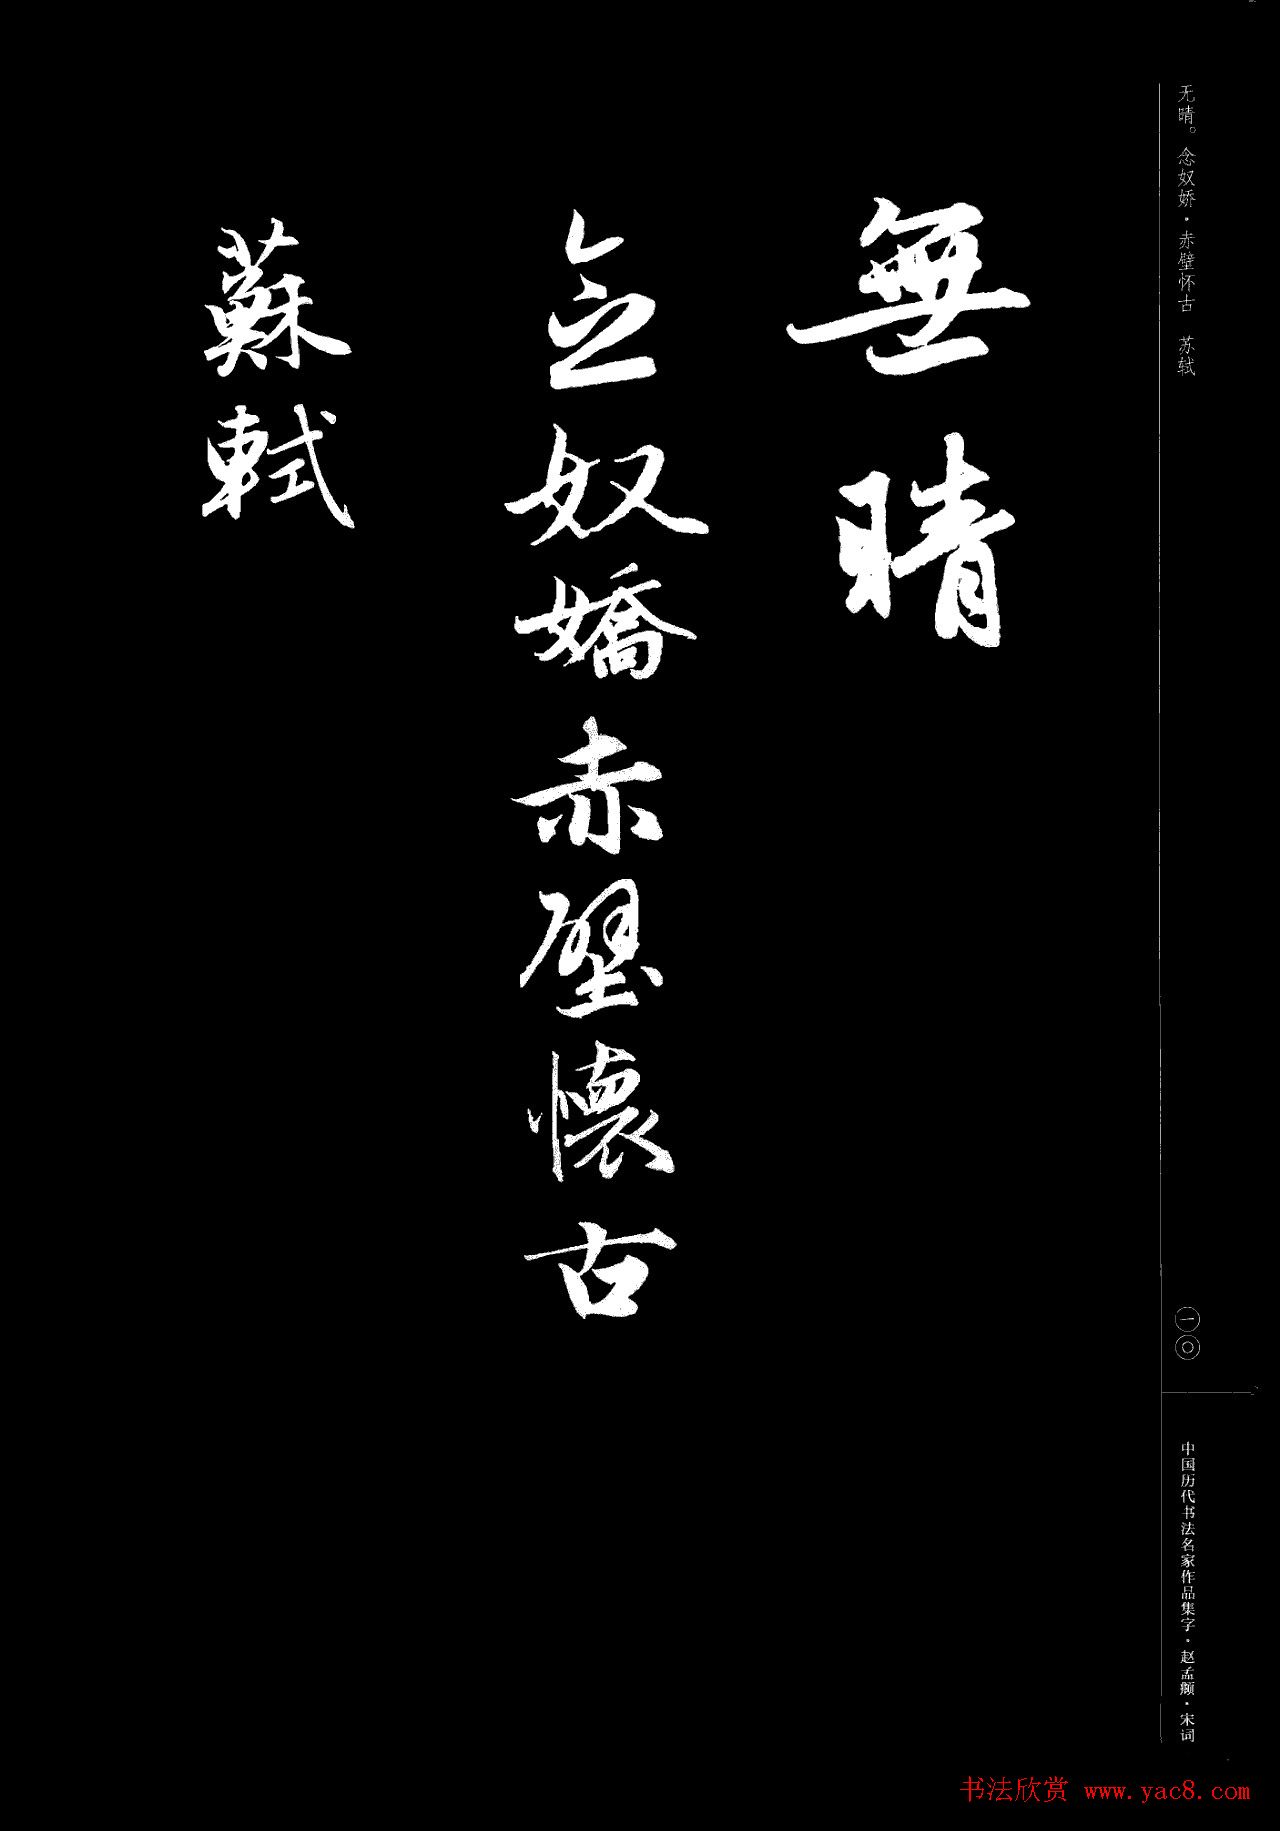 无晴。念奴娇·赤壁怀古 苏轼
無晴
念奴嬌赤壁懷古
蘇軾
一〇
中国历代书法名家作品集字·赵孟頫·宋词
书法欣赏 www.yac8.com